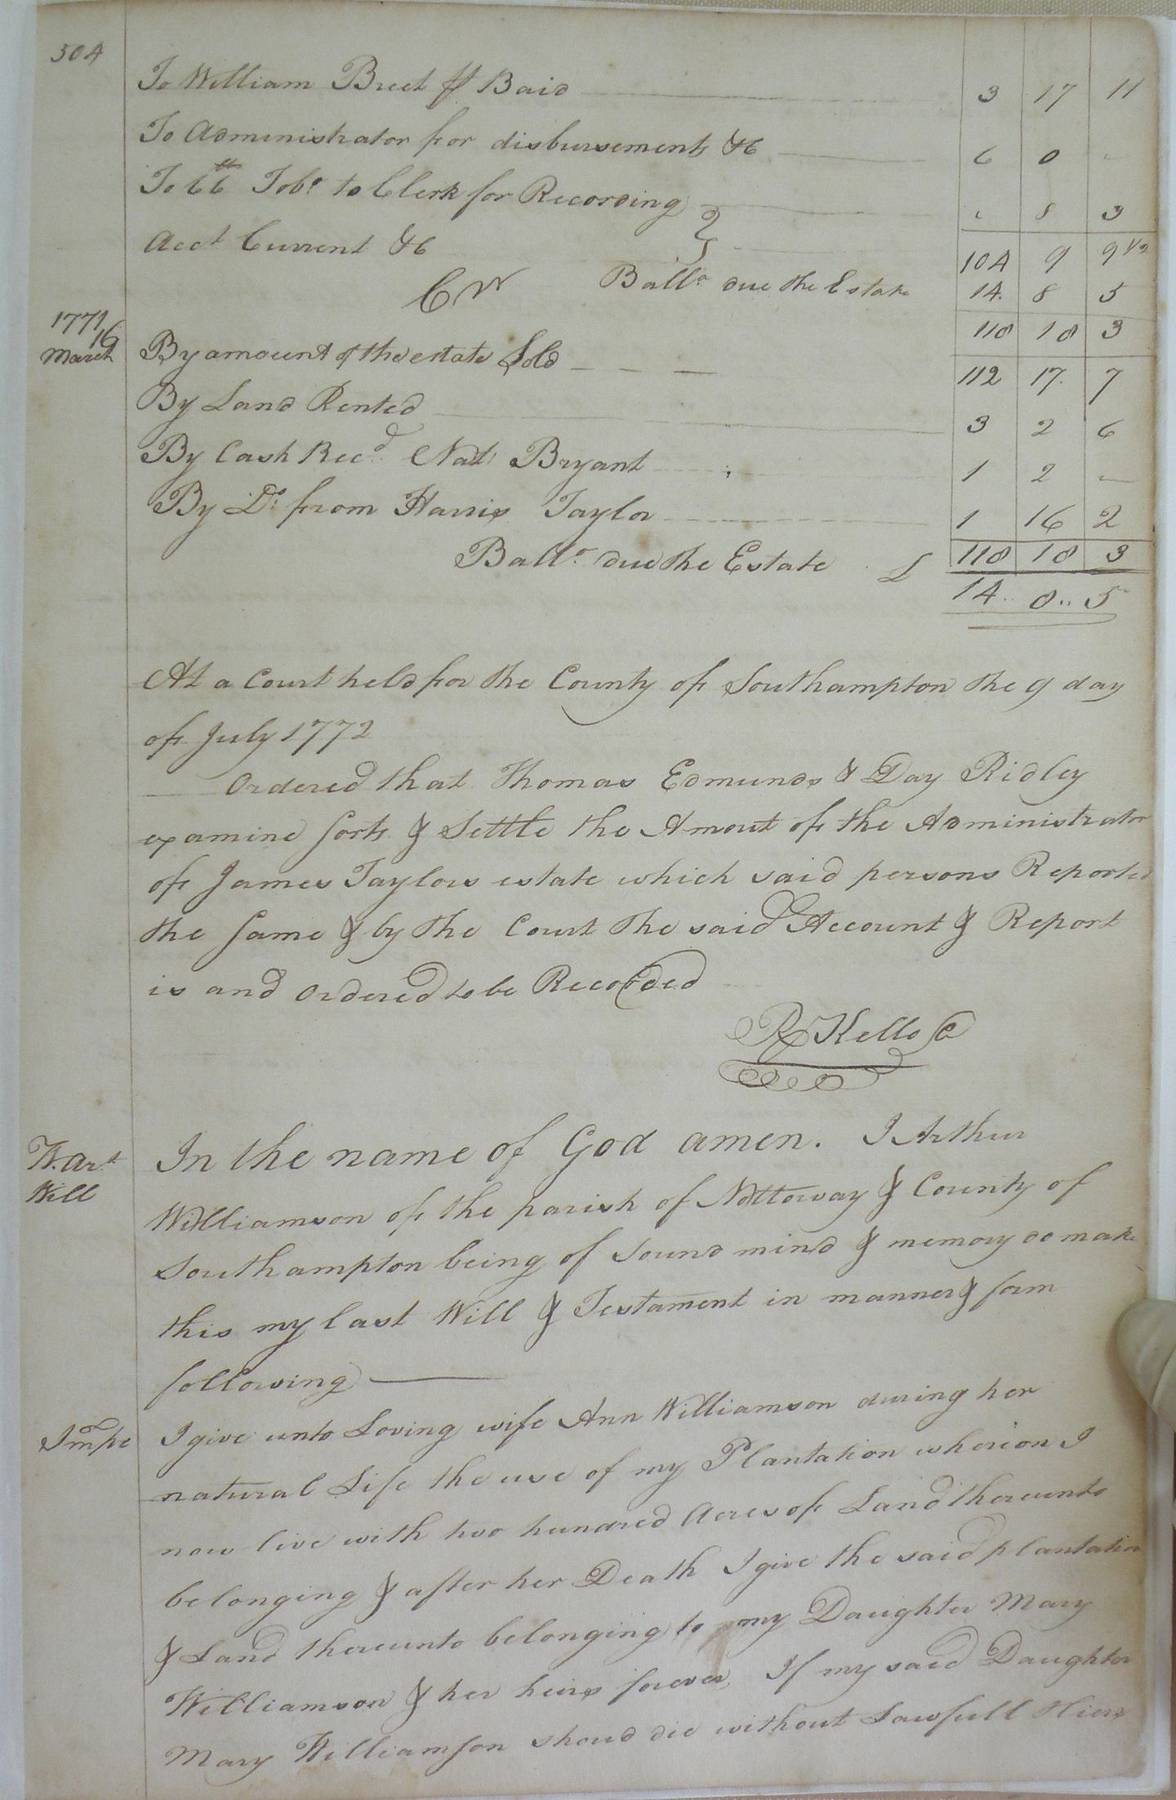 504
To William Breet Baid 3 17 11
To Administrator for disbursements &c 6 0 -
To lb Tobo. to Clerk for Recording 8 3
Acct. Current &c 104 9 9 1/2
Cr Balla. due the Estate 14. 8 5
118 18 3
1771
16
March By amount of the estate Sold 112 17. 7
By Land Rented 3 2 6
By Cash Recd. Natl Bryant 1 2 -
By Do. from Harris Taylor 1 16 2
118 18 3
Balla. due the Estate £ 14.. 8.. 5
At a Court held for the County of Southampton the 9 day
of July 1772
Ordered that Thomas Edmunds & Day Ridley
examine Sorts & Settle the Amout of the Administrator
of James Taylors estate which said persons Reported
the same & by the Court the said Account & Report
is and ordered to be Recorded
R Kello C
W. Art
Will
In the name of God amen. I Arthur
Williamson of the parish of Nottoway & County of
Southampton being of sound mind & memory do make
this my last Will & Testament in manner & form
following
Impe I give unto Loving wife Ann Williamson during her
natural Life the use of my Plantation whereon I
now live with two hundred Acres of Land thereunto
belonging & after her Death I give the said plantation
& Land thereunto belonging to my Daughter Mary
Williamson & her heirs forever, If my said Daughter
Mary Williamson shoud die without Lawfull Hiers